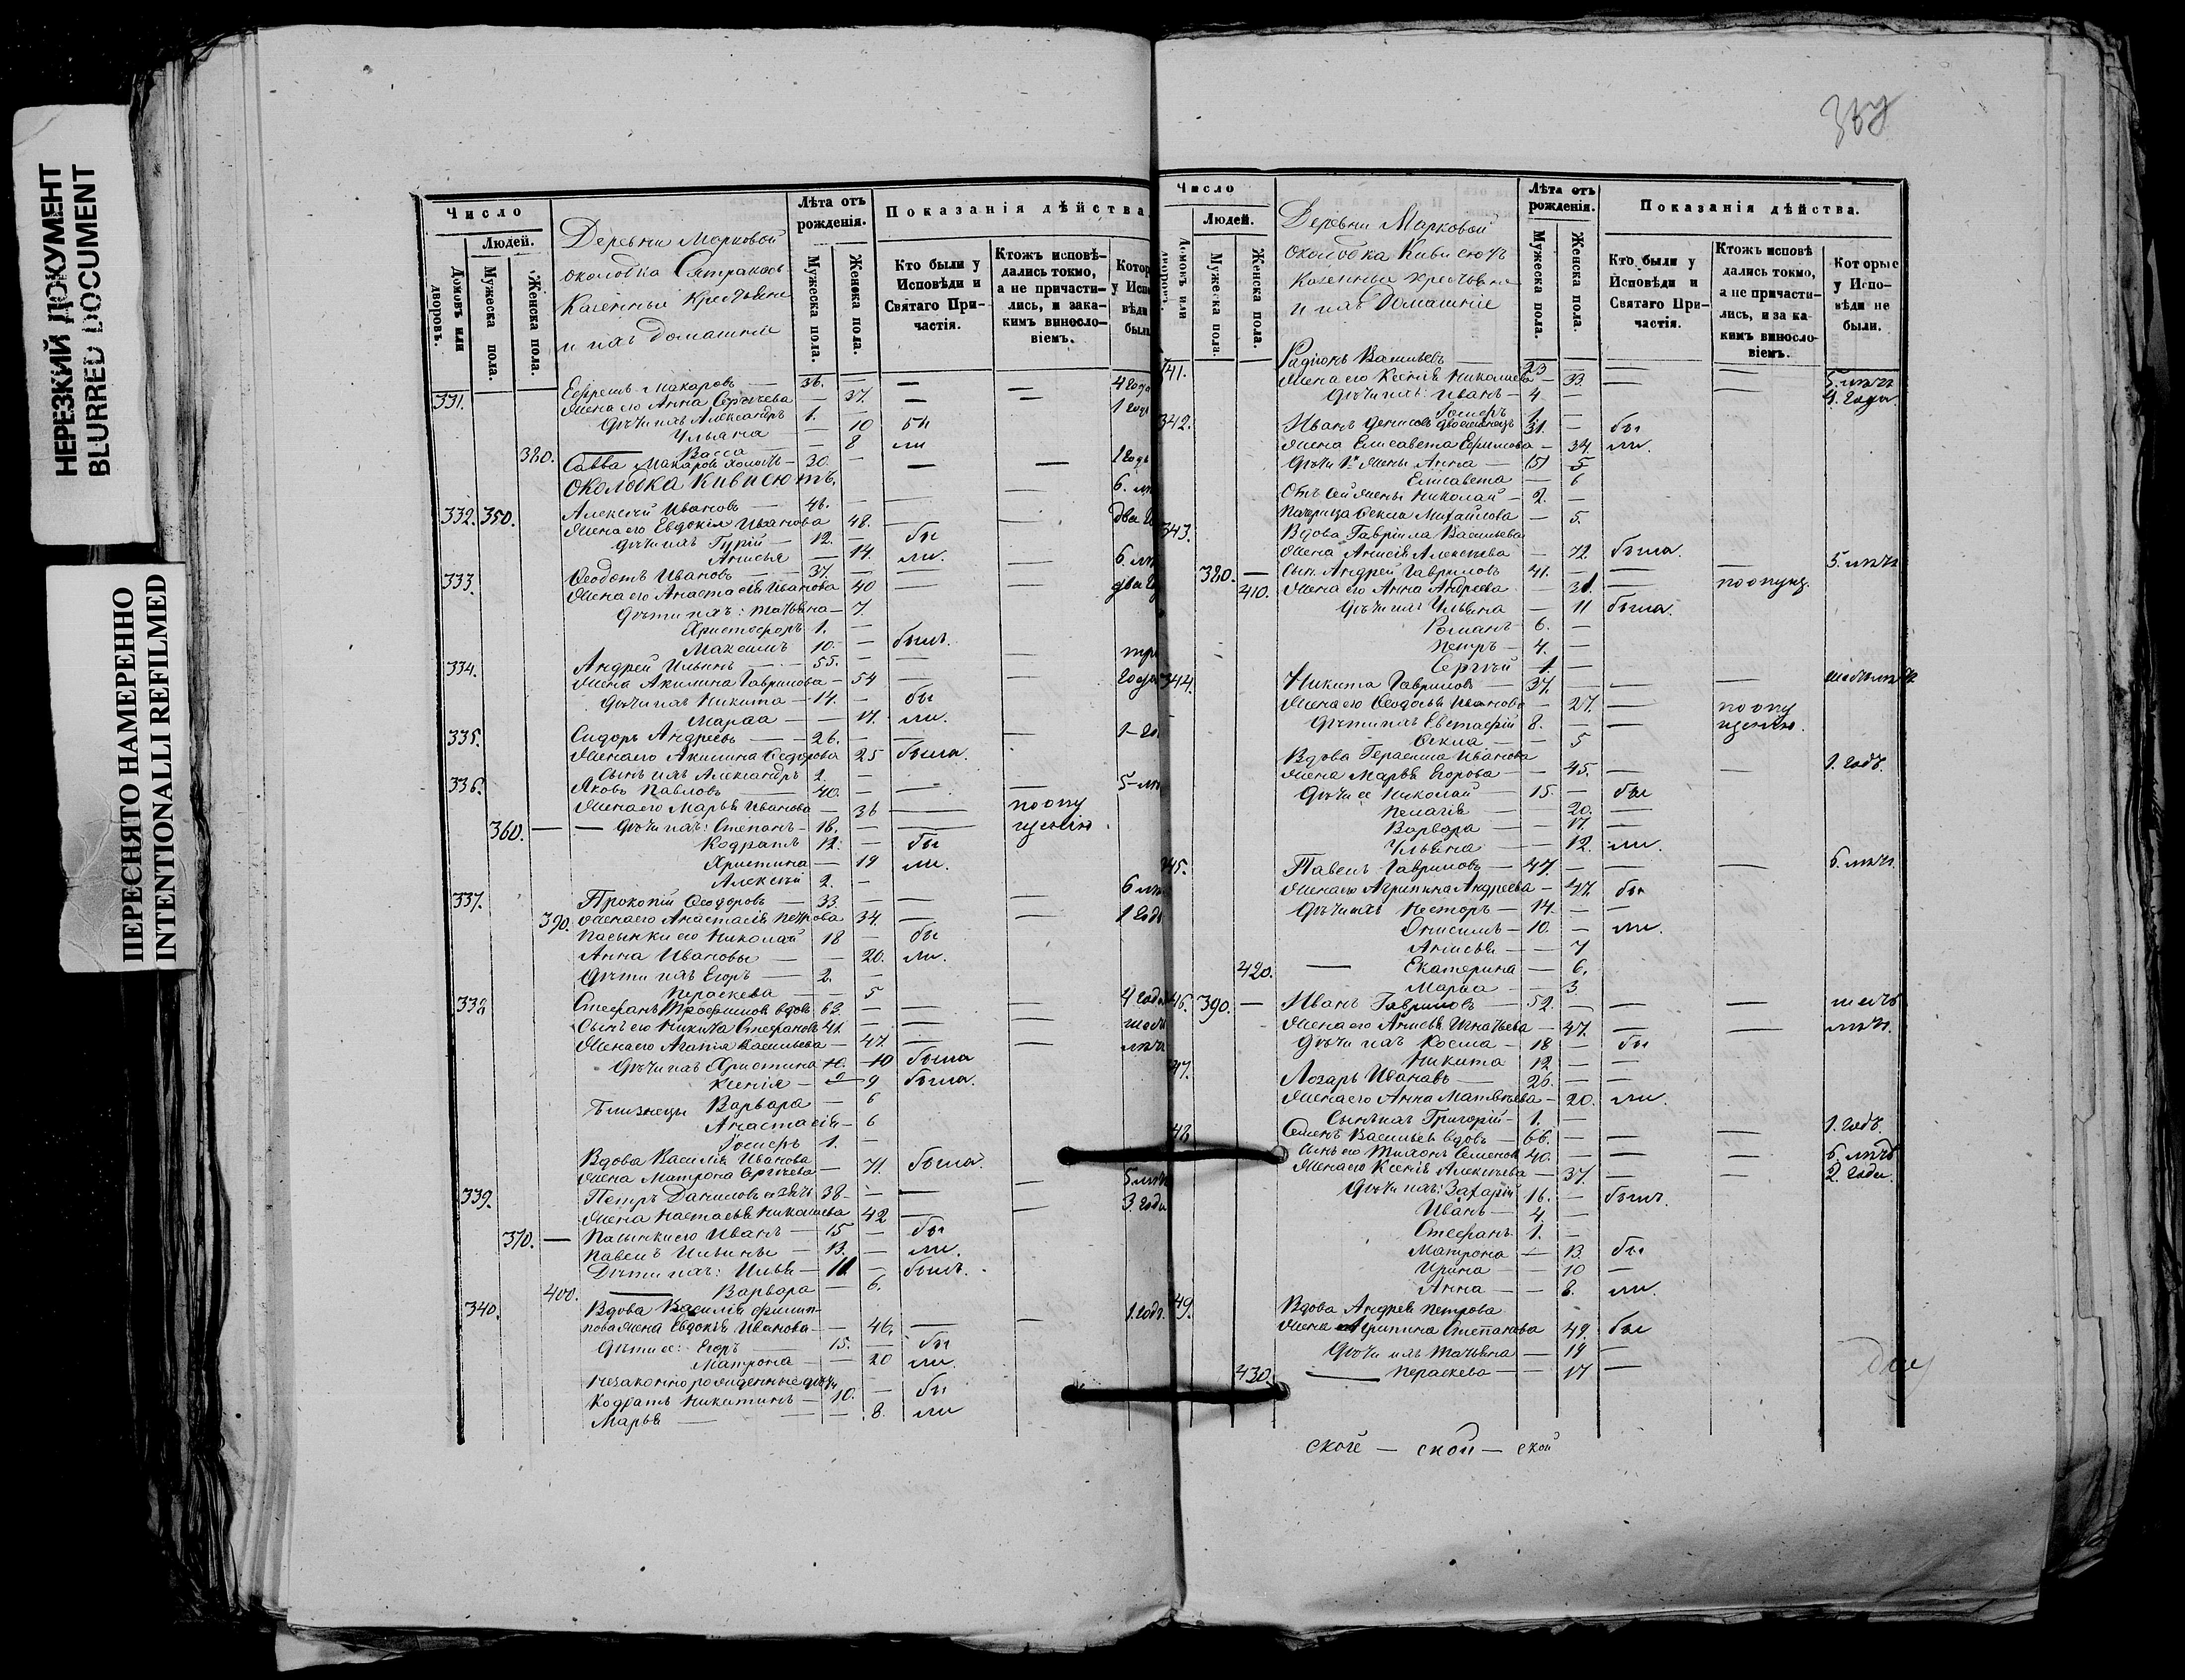 НЕРЕЗКИЙ ДОКУМЕНТ
BLURRED DOCUMENT
ПЕРЕСНЯТО НАМЕРЕННО
INTENTIONALLI REFILMED
Число
Людей.
Домовъ или дворовъ.
Мужеска пола.
Женска пола.
Деревни Марковой
околодка
Казенные Крестьяне
и ихъ домашніе
Лѣта отъ рожденія.
Мужеска пола.
Женска пола.
Показанія дѣйства
Кто были у Исповѣди и Святаго Причастія.
Ктожъ исповѣдались токмо, а не причастились, и закакимъ винословіемъ.
331. Ефремъ Макаровъ — 36. — — 4 года
Жена его Анна Сергѣева — 37. — — 1 годъ
Дѣти ихъ Александръ 1. —
Ульяна — 10 бы
380. Васса — 8 ли
Савва Макаровъ холостъ — 30. — — 1 годъ
Околодка Кивисютъ.
332. 350. Алексѣй Ивановъ — 46. — — 6.
Жена его Евдокія Иванова 48. — — два
Дѣти ихъ Гурій — 12. — бы
Анисья — 14. ли.
333. Ѳеодотъ Ивановъ — 37. — — 6.
Жена его Анастасія Иванова 40 — — два
Дѣти ихъ: Татьяна — 7.
Христофоръ 1. —
Максимъ 10. — былъ.
334. Андрей Ильинъ — 55. — —
Жена Акилина Гаврилова — 54 — — года
Дѣти ихъ Никита — 14. — бы
Марѳа — 17. ли.
335. Сидоръ Андреевъ — 26. — —
Жена его Акилина Ѳедорова 25 была.
Сынъ ихъ Александръ 2. —
336. Яковъ Павловъ — 40. — —
Жена его Марья Иванова 36 — по опу
360. — Дѣти ихъ: Степанъ — 18. — — щенію.
Кодратъ 12. — бы
Христина — 19 ли.
Алексѣй 2. —
337. Прокопій Ѳеодоровъ — 33. — — 6
390. Жена его Анастасія Петрова 34. — — 1 годъ
Пасынки его Николай 18 бы
Анна Ивановы — 20. ли.
Дѣти ихъ Егоръ — 2. —
Параскева — 5
338 Стефанъ Трофимовъ вдовъ 63. — — 4 года
Сынъ его Никита Стефановъ 41. — —
Жена его Агапія Васильева — 47. — —
Дѣти ихъ Христина — 10 была
Ксенія — 9 была.
Близнецы Варвара — 6
Анастасія — 6
1. —
Вдова Василія Иванова
Жена Матрона Сергѣева — 71. была.
339. Петръ Даниловъ 38 — — 5
Жена Настасья Николаева 42 — — 3. года
370. — Пасынки его Иванъ — 15 — бы
Павелъ Ильины — 13. — ли.
Дѣти ихъ: Илья — 11 — былъ.
400. Варвара — 6.
340. Вдова Василія Филип-
пова жена Евдокія Иванова — 46. — — 1. годъ.
Дѣти ее: Егоръ — 15. — бы
Матрона — 20 ли.
Незаконнорожденные дѣти
Кодратъ Никитинъ — 10. — бы
Марья — 8. ли
Число
Людей.
Домовъ или дворовъ.
Мужеска пола.
Женска пола.
Деревни Марковой
околодка Кивисютъ
Казенные крестьяне
и ихъ домашніе
Лѣта отъ рожденія.
Мужеска пола.
Женска пола.
Показанія дѣйства.
Кто были у Исповѣди и Святаго Причастія.
Ктожъ исповѣдались токмо, а не причастились, и за какимъ винословіемъ.
Которые у Исповѣди не были.
341. Радіонъ Васильевъ — 33 — — 5. лѣтъ
Жена его Ксенія Николаева — 33. — — 4. года.
Дѣти ихъ: Иванъ — 4. —
1. —
342. Иванъ Денисовъ 31. — бы
Жена Елисавета Ефимова — 34. ли.
Дѣти 1й жены Анна — 5
Елисавета — 6
Отъ сей жены Николай — 2. —
Ѳекла Михайлова — 5.
343. Вдова Гавріила Васильева
жена Анисія Алексѣева — 72. была.
380. — Сынъ Андрей Гавриловъ 41. — — 5. лѣтъ
410. Жена его Анна Андреева — 31. — по опущ.
Дѣти ихъ Ульяна — 11 была.
Романъ 6. —
Петръ — 4. —
Сергѣй 1. —
344. Никита Гавриловъ — 37. — —
Жена его Ѳеодосья Иванова — 27. — по опу
Дѣти ихъ Евстафій 8. — — щенію.
Ѳекла — 5
Вдова Герасима Иванова
жена Марья Егорова — 45. — — 1. годъ.
Дѣти ее Николай — 15. — бы
Пелагія — 20. —
Варвара — 17. —
Ульяна — 12. ли.
345. Павелъ Гавриловъ — 47. — — 6. лѣтъ.
Жена его Агрипина Андреева — 47. бы
Дѣти ихъ Несторъ — 14. — —
Онисимъ — 10. — ли.
Анисья — 7
420. Екатерина — 6.
Марѳа — 3.
346. 390. — Иванъ Гавриловъ — 52. — —
Жена его Анисья Игнатьева — 47. — — лѣтъ.
Дѣти ихъ Косма — 18 — бы
Никита 12 — —
347. Лазарь Ивановъ — 26. — —
Жена его Анна Матвѣева — 20. ли.
Сынъ ихъ Григорій — 1. —
348 Семенъ Васильевъ вдовъ — 66. — — 1. годъ.
Сынъ его Тихонъ Семеновъ 40. — — 6. лѣтъ
Жена его Ксенія Алексѣева — 37. — — 2. года.
Дѣти ихъ: Захарій 16. — былъ.
Иванъ — 4. —
Стефанъ 1. —
Матрона — 13. бы
Ирина — 10 —
Анна — 8. ли.
349. Вдова Андрея Петрова
Жена Агрипина Степанова 49. бы
Дѣти ихъ Татьяна — 19 —
430. Параскева — 17 —
ской — ской — ской